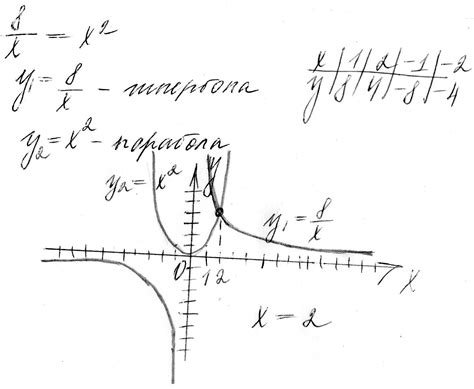 8/x = x²
y₁ = 8/x - гипербола
x | 1 | 2 | -1 | -2
y | 8 | 4 | -8 | -4
y₂ = x² - парабола
y₂ = x²
y
y₁ = 8/x
0 1 2
x
x = 2